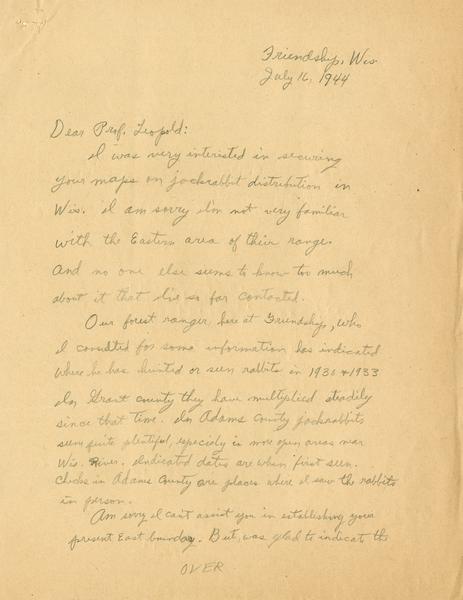 Friendship, Wis.
July 16, 1944
Dear Prof. Leopold:
I was very interested in securing
your maps on jackrabbit distribution in
Wis. I am sorry I'm not very familiar
with the Eastern area of their range.
And no one else seems to know too much
about it that I've so far contacted.
Our forest ranger here at Friendship, who
I consulted for some information has indicated
where he has hunted or seen rabbits in 1930 & 1933
In Grant County they have multiplied steadily
since that time. In Adams County jackrabbits
seem quite plentiful, especialy in more open areas near
Wis. River. Indicated dates are when first seen.
Checks in Adams County are places where I saw the rabbits
in person.
Am sorry I can't assist you in establishing your
present East boundary. But, was glad to indicate the
OVER